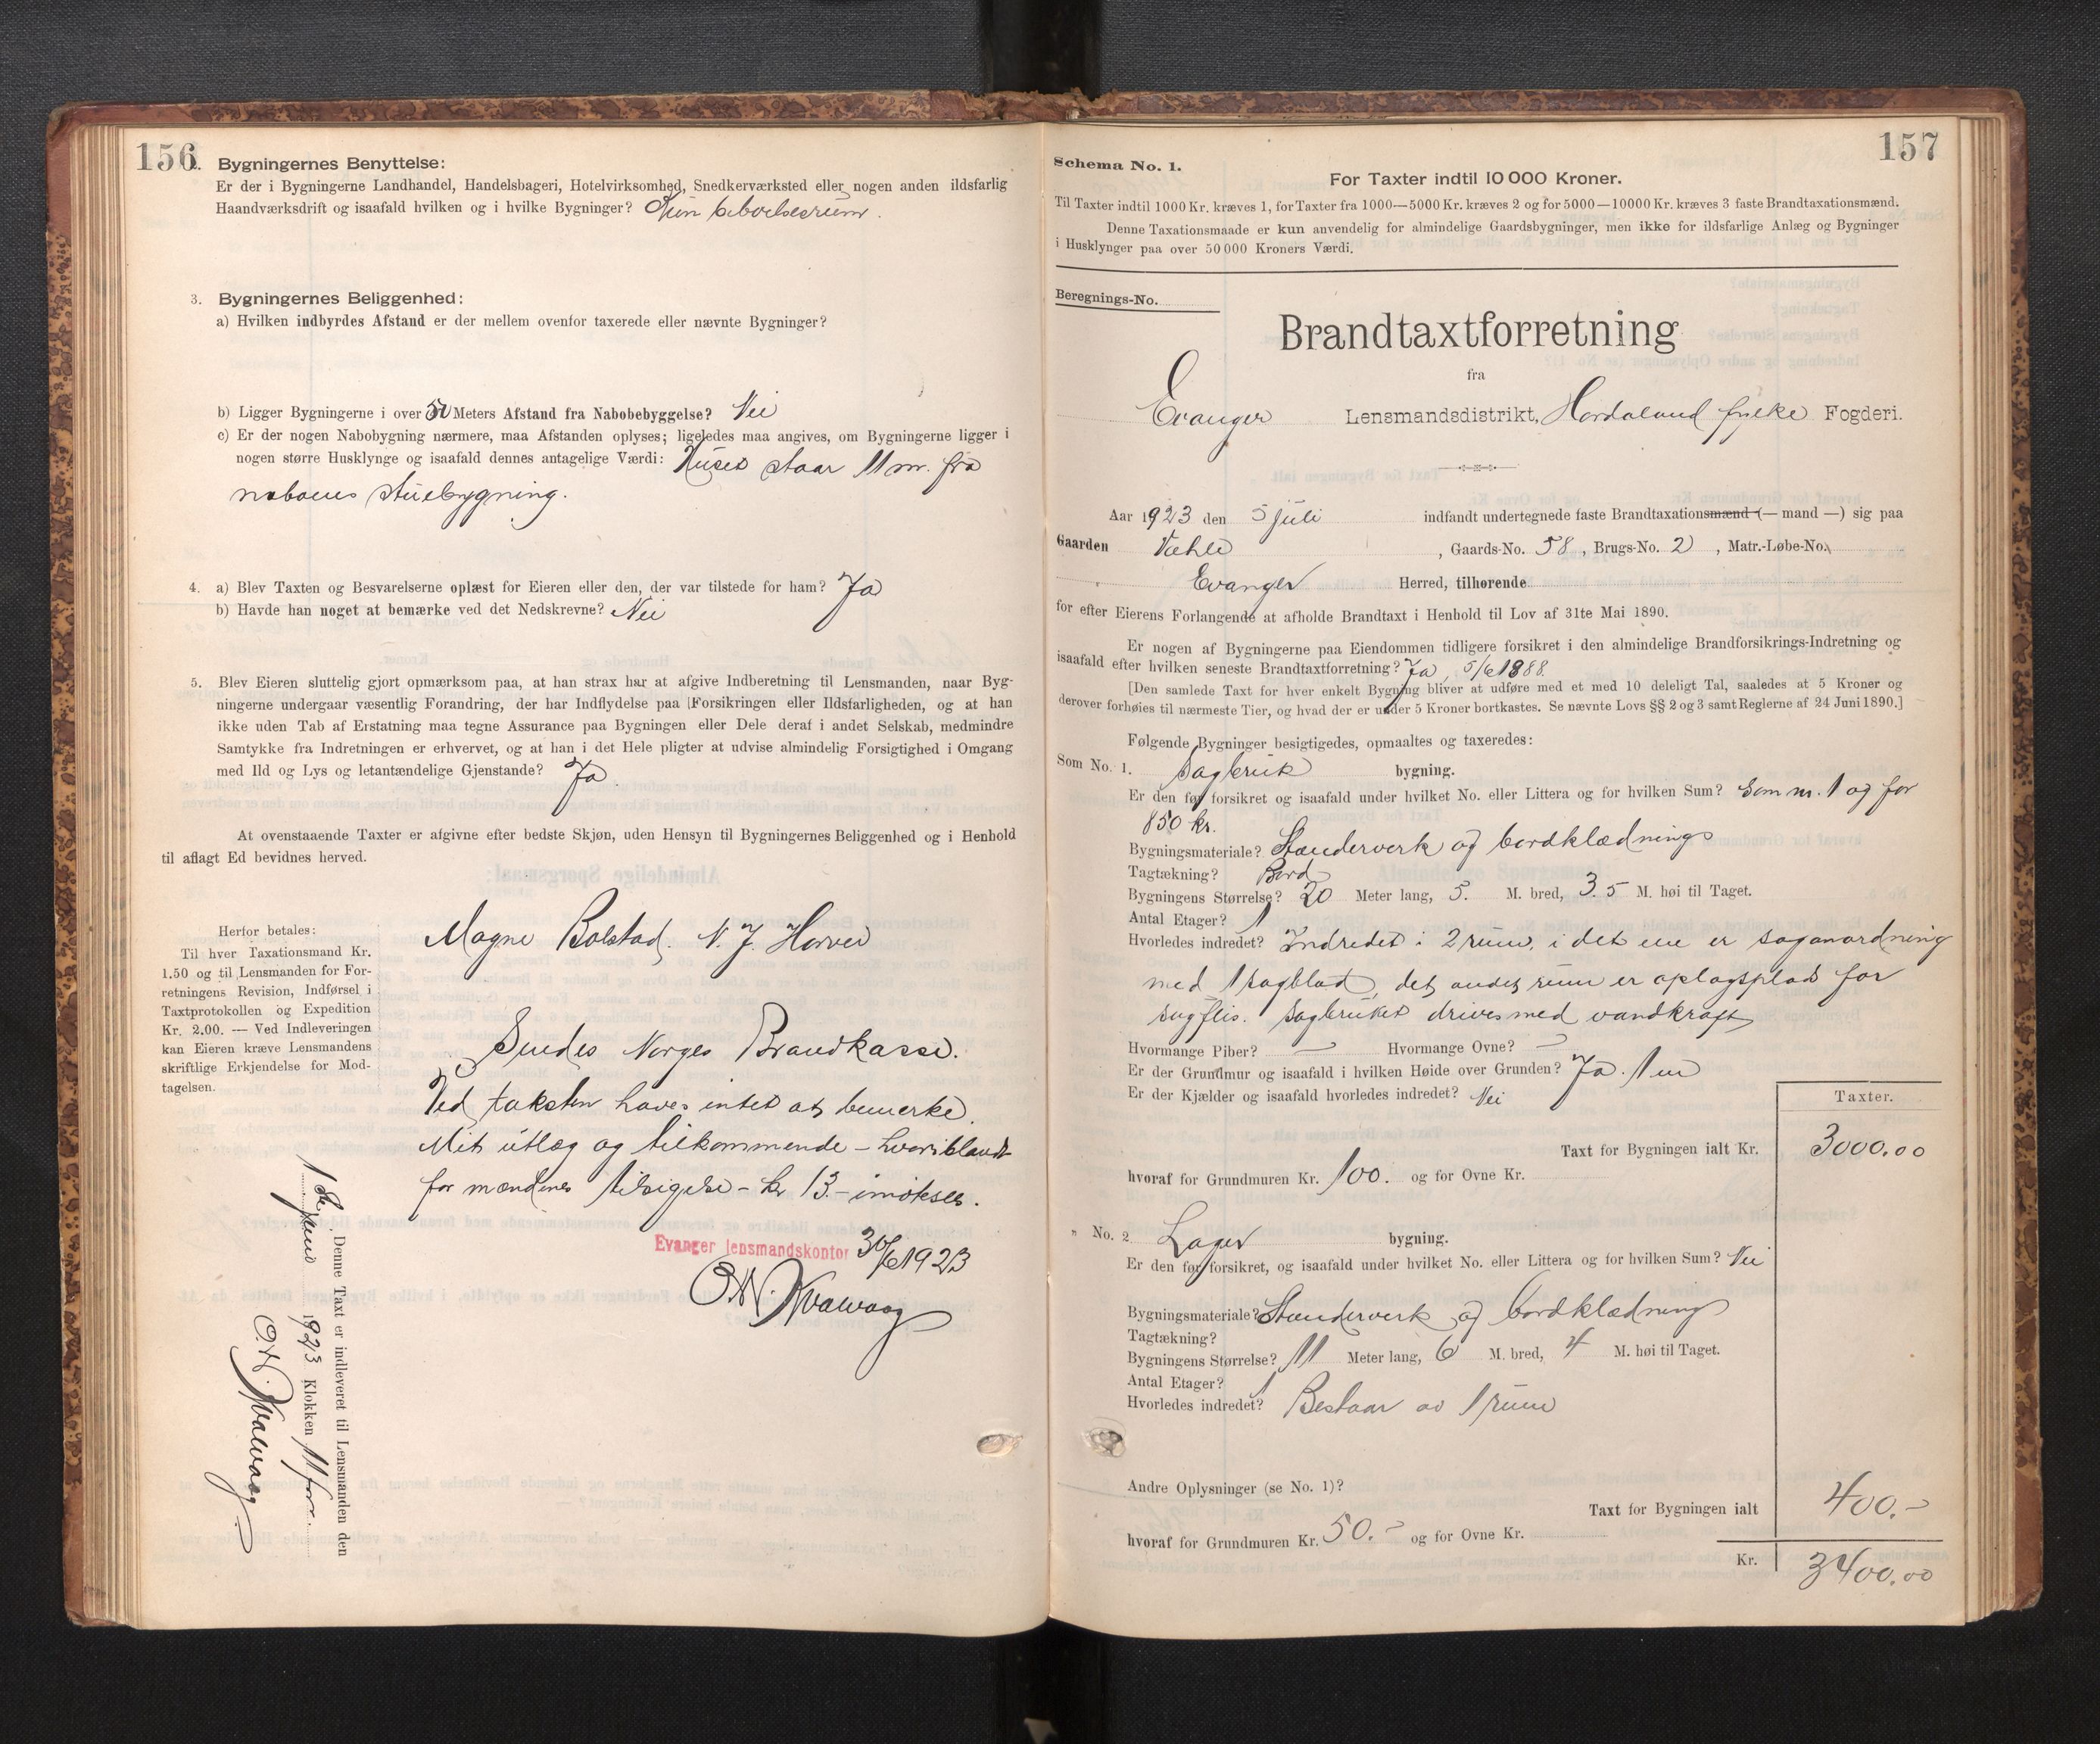 156
2. Bygningernes Benyttelse:
Er der i Bygningerne Landhandel, Handelsbageri, Hotelvirksomhed, Snedkerværksted eller nogen anden ildsfarlig
Haandværksdrift og isaafald hvilken og i hvilke Bygninger? Kun beboelsesrum.
3. Bygningernes Beliggenhed:
a) Hvilken indbyrdes Afstand er der mellem ovenfor taxerede eller nævnte Bygninger?
b) Ligger Bygningerne i over 50 Meters Afstand fra Nabobebyggelse? Nei
c) Er der nogen Nabobygning nærmere, maa Afstanden oplyses; ligeledes maa angives, om Bygningerne ligger i
nogen større Husklynge og isaafald dennes antagelige Værdi: Huset staar 11 m. fra
naboens stuebygning.
4. a) Blev Taxten og Besvarelserne oplæst for Eieren eller den, der var tilstede for ham? Ja
b) Havde han noget at bemærke ved det Nedskrevne? Nei
5. Blev Eieren sluttelig gjort opmærksom paa, at han strax har at afgive Indberetning til Lensmanden, naar Byg-
ningerne undergaar væsentlig Forandring, der har Indflydelse paa Forsikringen eller Ildsfarligheden, og at han
ikke uden Tab af Erstatning maa tegne Assurance paa Bygningen eller Dele deraf i andet Selskab, medmindre
Samtykke fra Indretningen er erhvervet, og at han i det Hele pligter at udvise almindelig Forsigtighed i Omgang
med Ild og Lys og letantændelige Gjenstande? Ja.
At ovenstaaende Taxter er afgivne efter bedste Skjøn, uden Hensyn til Bygningernes Beliggenhed og i Henhold
til aflagt Ed bevidnes herved.
Herfor betales:
Til hver Taxationsmand Kr.
1.50 og til Lensmanden for For-
retningens Revision, Indførsel i
Taxtprotokollen og Expedition
Kr. 2.00. — Ved Indleveringen
kan Eieren kræve Lensmandens
skriftlige Erkjendelse for Mod-
tagelsen.
Magne Bolstad. N. J. Horvei
Sendes Norges Brandkasse.
Ved taksten haves intet at bemerke.
Mit utlæg og tilkommende - hvoriblandt
for mændenes tilsigelse - kr 13.- imøtsees.
Evanger lensmandskontor 30/6 1923
O. N. Kvalvaag
Denne Taxt er indleveret til Lensmanden den
1ste juni 1923 Klokken 11 form.
O. N. Kvalvaag
157
Schema No. 1.
For Taxter indtil 10 000 Kroner.
Til Taxter indtil 1000 Kr. kræves 1, for Taxter fra 1000—5000 Kr. kræves 2 og for 5000—10000 Kr. kræves 3 faste Brandtaxationsmænd.
Denne Taxationsmaade er kun anvendelig for almindelige Gaardsbygninger, men ikke for ildsfarlige Anlæg og Bygninger
i Husklynger paa over 50 000 Kroners Værdi.
Beregnings-No.
Brandtaxtforretning
fra
Evanger Lensmandsdistrikt, Hordaland fylke Fogderi.
Aar 1923 den 5 juli indfandt undertegnede faste Brandtaxationsmænd (— mand —) sig paa
Gaarden Væhle, Gaards-No. 58, Brugs-No. 2, Matr.-Løbe-No.
Evanger Herred, tilhørende
for efter Eierens Forlangende at afholde Brandtaxt i Henhold til Lov af 31te Mai 1890.
Er nogen af Bygningerne paa Eiendommen tidligere forsikret i den almindelige Brandforsikrings-Indretning og
isaafald efter hvilken seneste Brandtaxtforretning? Ja, 5/6 1888.
[Den samlede Taxt for hver enkelt Bygning bliver at udføre med et med 10 deleligt Tal, saaledes at 5 Kroner og
derover forhøies til nærmeste Tier, og hvad der er under 5 Kroner bortkastes. Se nævnte Lovs §§ 2 og 3 samt Reglerne af 24 Juni 1890.]
Følgende Bygninger besigtigedes, opmaaltes og taxeredes:
Som No. 1. Sagbruk bygning.
Er den før forsikret og isaafald under hvilket No. eller Littera og for hvilken Sum? Som nr. 1 og for
850 kr.
Bygningsmateriale? Stænderverk og bordklædning
Tagtækning? Bord
Bygningens Størrelse? 20 Meter lang, 5. M. bred, 3.5 M. høi til Taget.
Antal Etager? 1
Hvorledes indredet? Indredet i 2 rum, i det ene er saganordning
med 1 sagblad, det andet rum er oplagsplads for
sagflis. Sagbruket drives med vandkraft
Hvormange Piber? — Hvormange Ovne? —
Er der Grundmur og isaafald i hvilken Høide over Grunden? Ja. 1 m
Er der Kjælder og isaafald hvorledes indredet? Nei
Taxter.
Taxt for Bygningen ialt Kr. 3000.00
hvoraf for Grundmuren Kr. 100. og for Ovne Kr.
" No. 2 Lager bygning.
Er den før forsikret, og isaafald under hvilket No. eller Littera og for hvilken Sum? Nei
Bygningsmateriale? Stænderverk og bordklædning
Tagtækning?
Bygningens Størrelse? 11 Meter lang, 6 M. bred, 4 M. høi til Taget.
Antal Etager? 1
Hvorledes indredet? Bestaar av 1 rum
Andre Oplysninger (se No. 1)?
Taxt for Bygningen ialt 400.-
hvoraf for Grundmuren Kr. 50.- og for Ovne Kr.
Kr. 3400.00